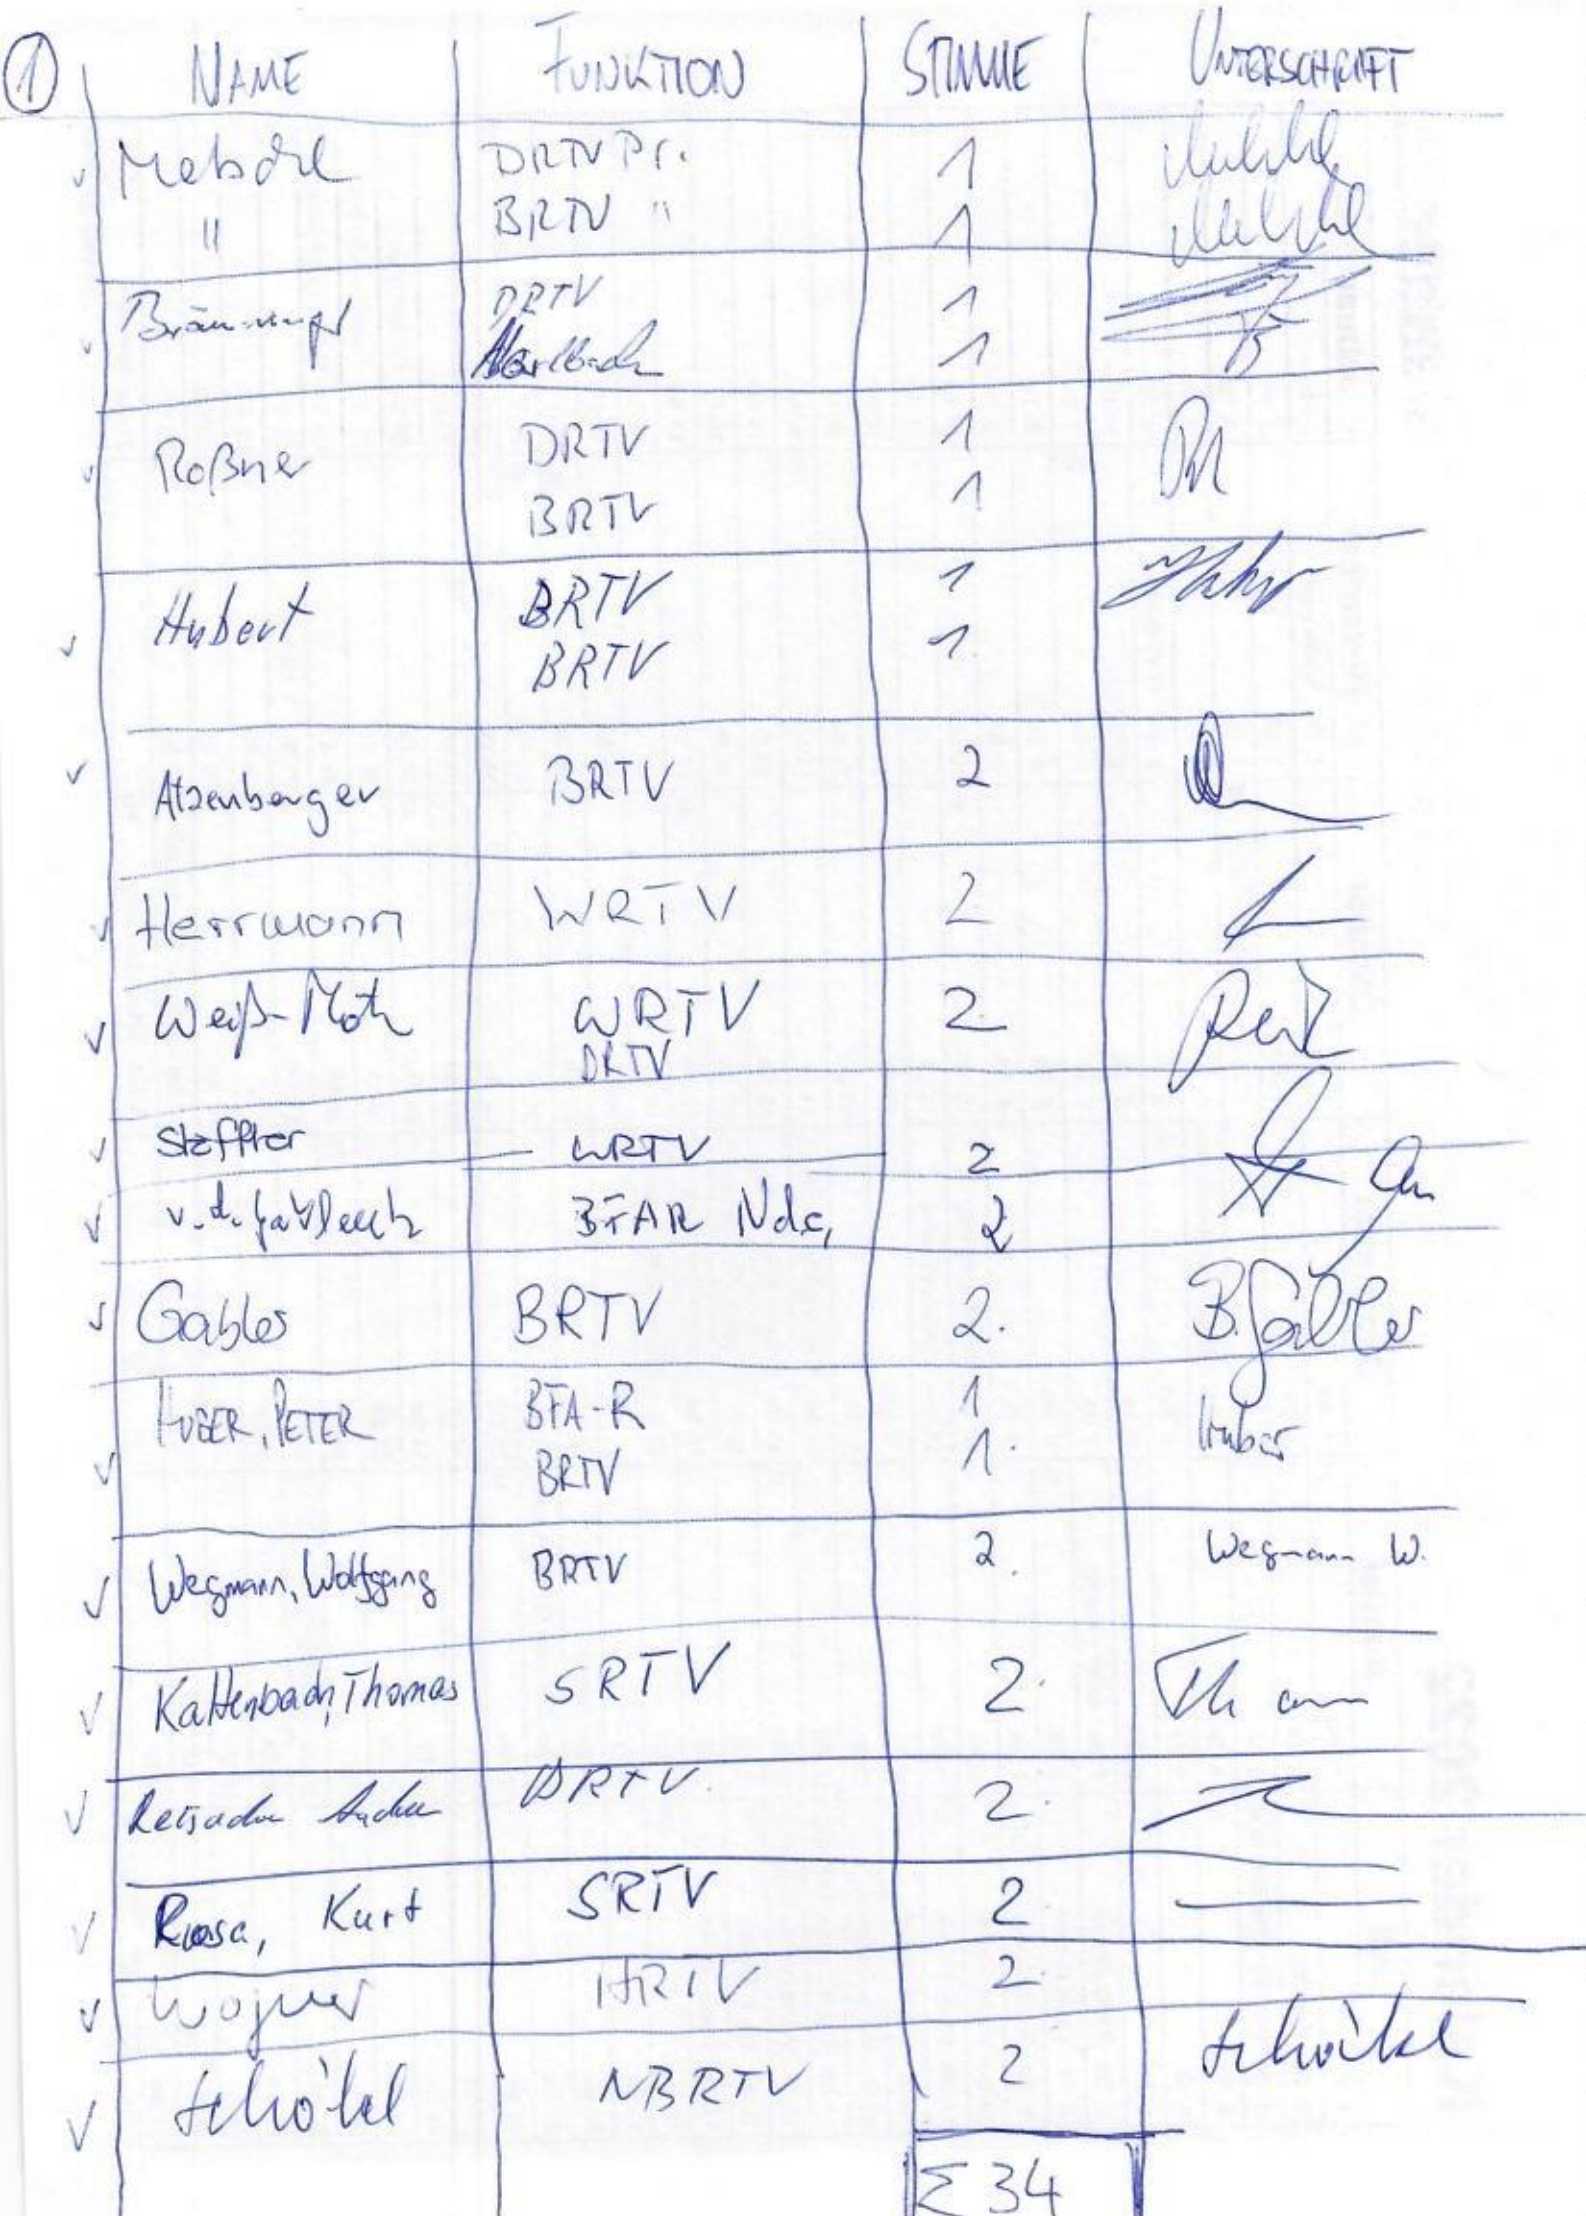 1 NAME FUNKTION STIMME UNTERSCHRIFT
DRTV Pr. 1
" BRTV " 1
DRTV 1
1
Roßner DRTV 1
BRTV 1
Hubert BRTV 1
BRTV 1
Atzenberger BRTV 2
Herrmann WRTV 2
Weiß-Motz WRTV 2
DRTV
Steffler WRTV 2
v.d. BFAR Nds, 2
Gabler BRTV 2. B. Gabler
HUBER, PETER BFA-R 1 Huber
BRTV 1.
Wegmann, Wolfgang BRTV 2. Wegmann W.
Kaltenbach, Thomas SRTV 2.
BRTV. 2.
Rosa, Kurt SRTV 2
Wagner HRTV 2
Schökel NBRTV 2 Schökel
Σ 34